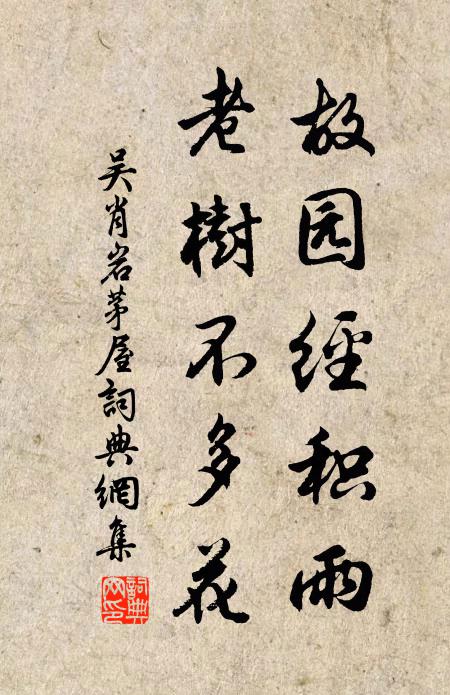 故园经积雨
老樹不多花
吴肖岩茅屋詞典網集
詞典網印